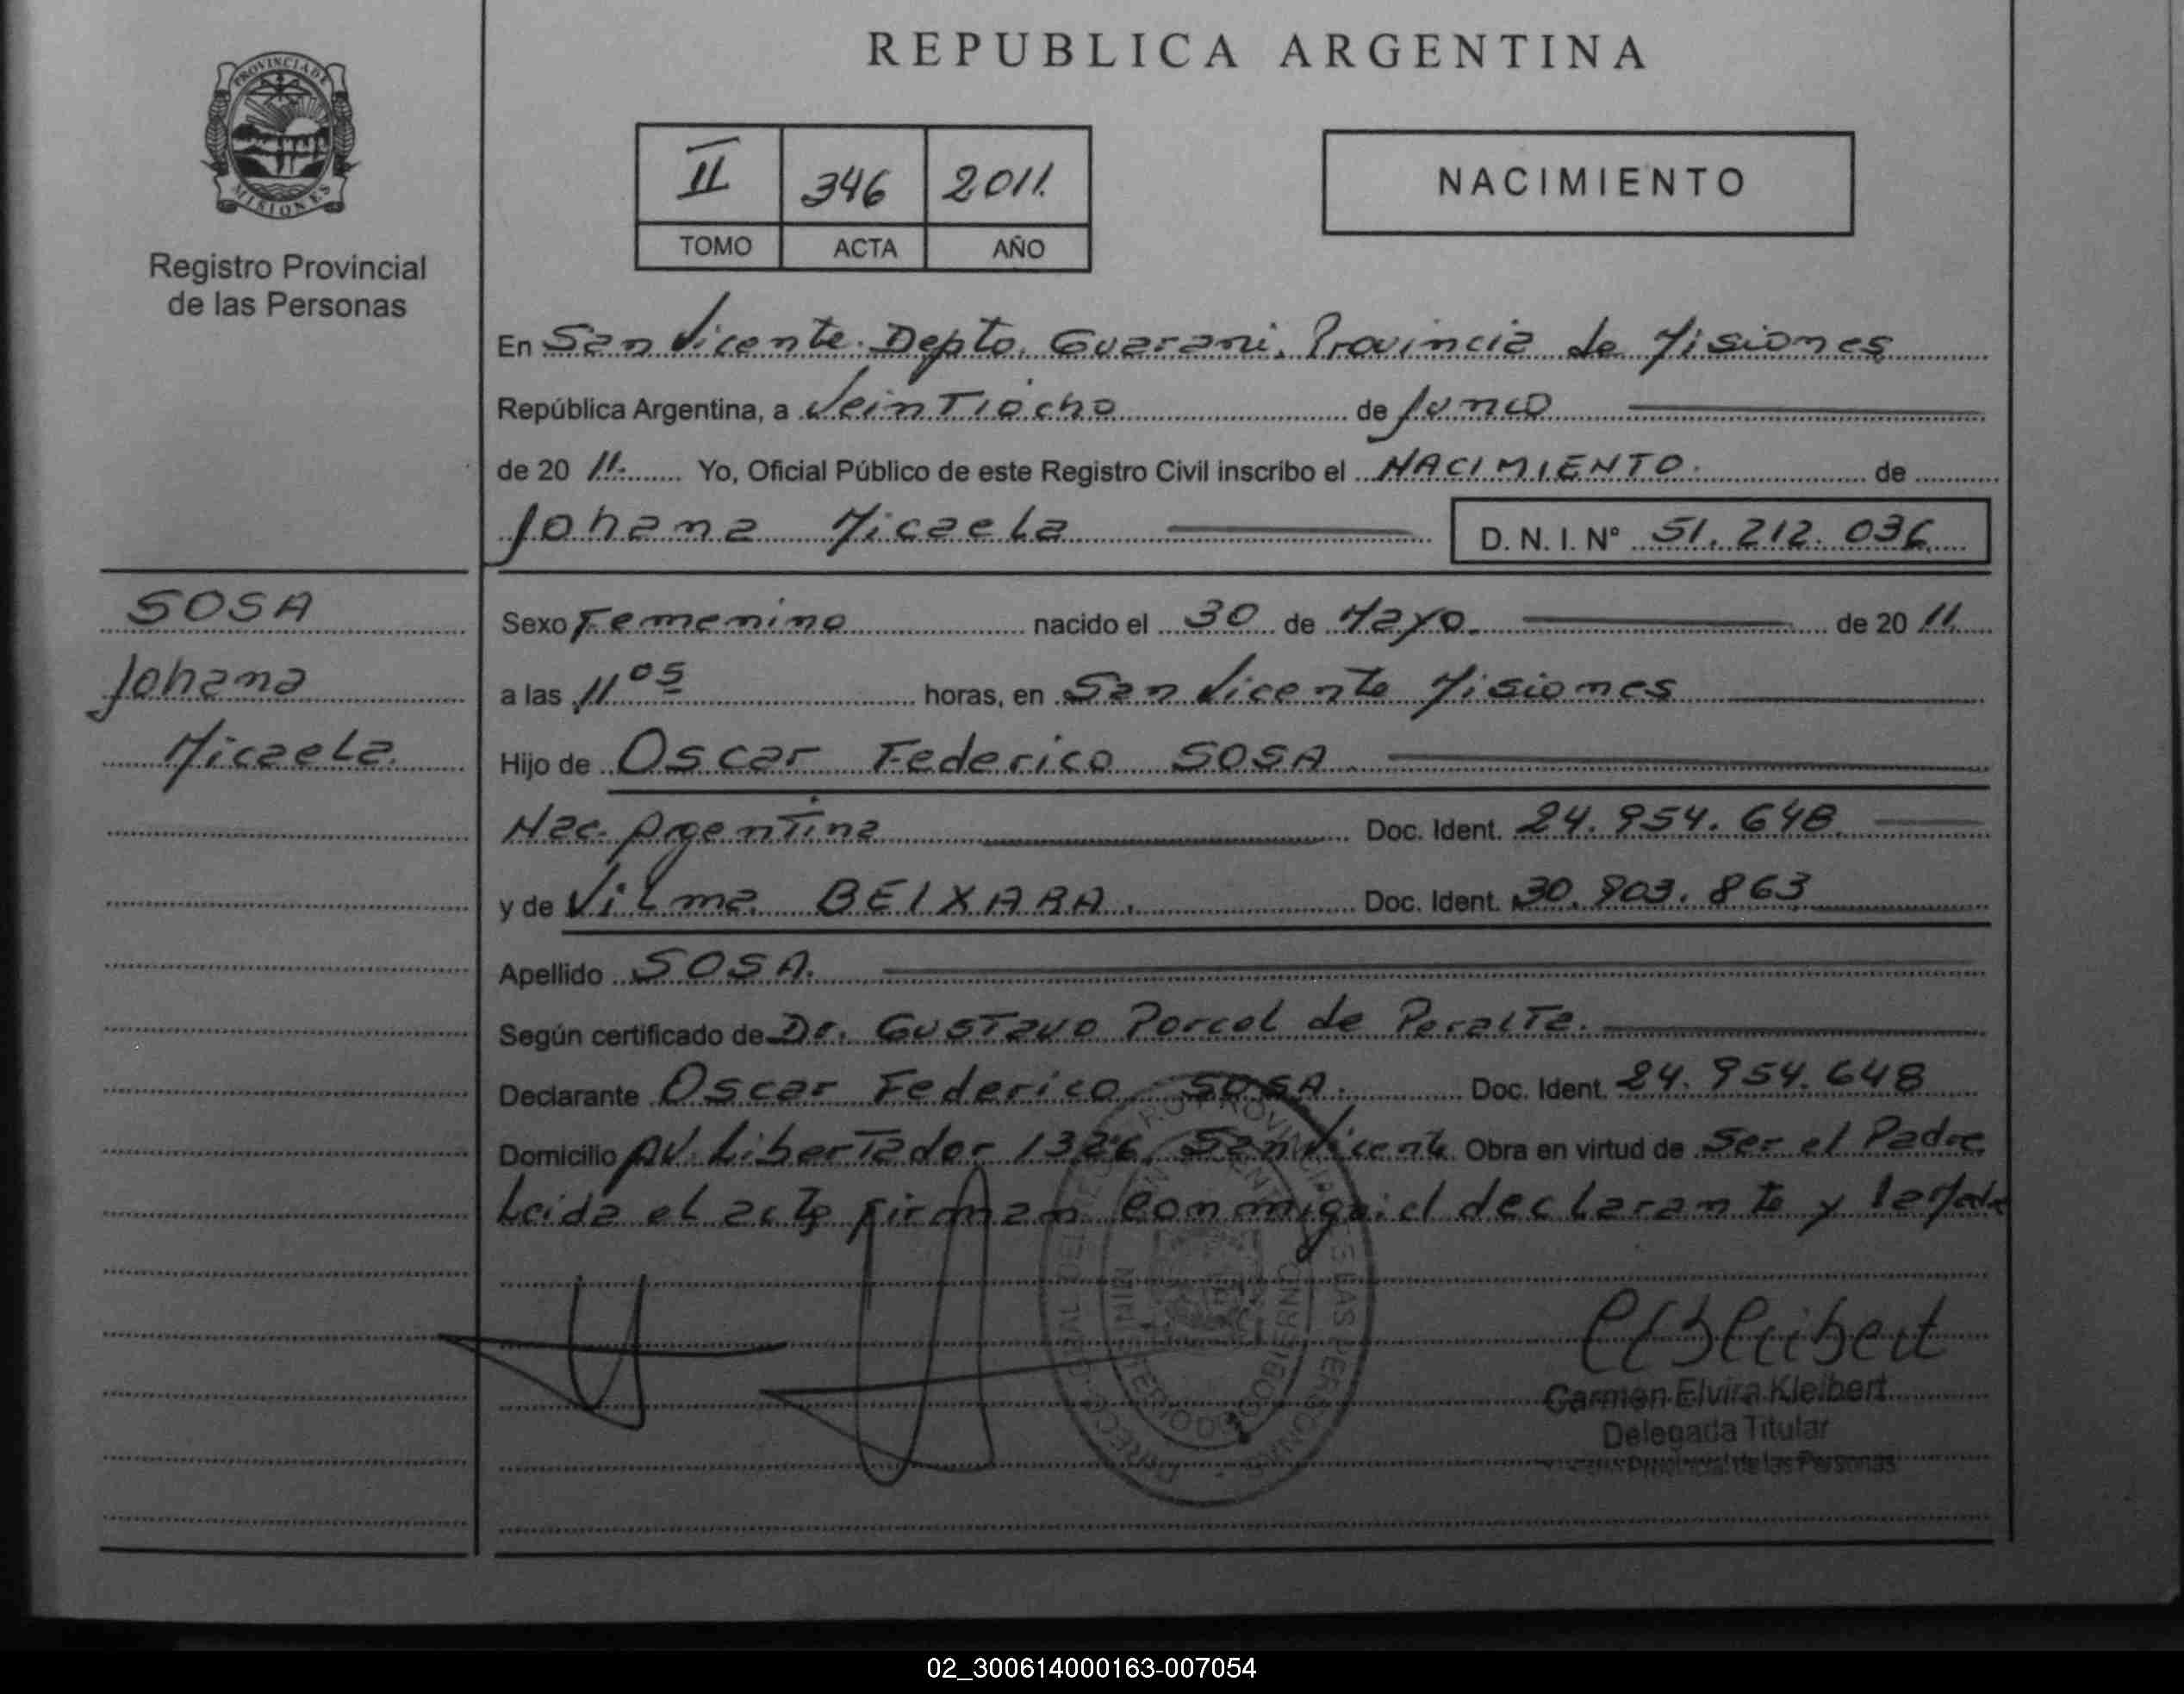 REPUBLICA ARGENTINA
PROVINCIA DE
MISIONES
Registro Provincial
de las Personas
II 346 2011.
TOMO ACTA AÑO
NACIMIENTO
En San Vicente. Depto. Guarani. Provincia de Misiones
República Argentina, a Veintiocho de Junio
de 20 11. Yo, Oficial Público de este Registro Civil inscribo el NACIMIENTO. de
Johana Micaela D. N. I. Nº 51. 212. 036
SOSA
Johana
Micaela.
Sexo Femenino nacido el 30 de Mayo de 20 11
a las 11 05 horas, en San Vicente Misiones
Hijo de Oscar Federico SOSA
Nac. Argentina Doc. Ident. 24. 954. 648
y de Vilma BEIXARA. Doc. Ident. 30. 903. 863
Apellido SOSA.
Según certificado de Dr. Gustavo Porcel de Peralta.
Declarante Oscar Federico SOSA. Doc. Ident. 24. 954. 648
Domicilio AV. Libertador 1326, San Vicente Obra en virtud de Ser el Padre
Leida el acta firman conmigo el declarante y la Made
Carmen Elvira Kleibert
Delegada Titular
Provincial de las Personas
02_300614000163-007054